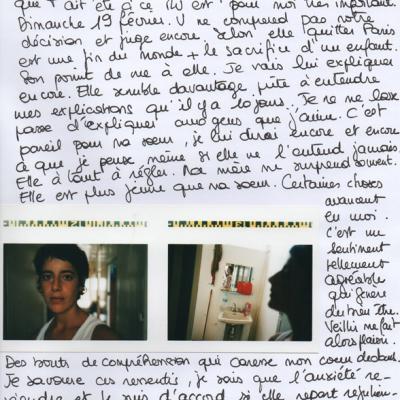 que + a été à ce RV est pour moi très important.
Dimanche 19 février. V ne comprend pas notre
décision et juge encore. Selon elle quitter Paris
est une fin du monde + le sacrifice d'un enfant.
Son point de vue à elle. Je vais lui expliquer
encore. Elle semble davantage prête à entendre
mes explications qu'il y a 10 jours. Je ne me lasse
pas d'expliquer aux gens que j'aime. C'est
pareil pour ma sœur, je lui dirai encore et encore
ce que je pense même si elle ne l'entend jamais.
Elle a tout à régler. Ma mère me surprend souvent.
Elle est plus jeune que ma sœur. Certaines choses
avancent
en moi.
C'est un
sentiment
tellement
agréable
qui génère
du bien être.
Vieillir me fait
alors plaisir.
Des bouts de compréhension qui caresse mon cœur dedans.
Je savoure ces ressentis, je sais que l'anxiété re-
viendra et je suis d'accord si elle repart régulièr-